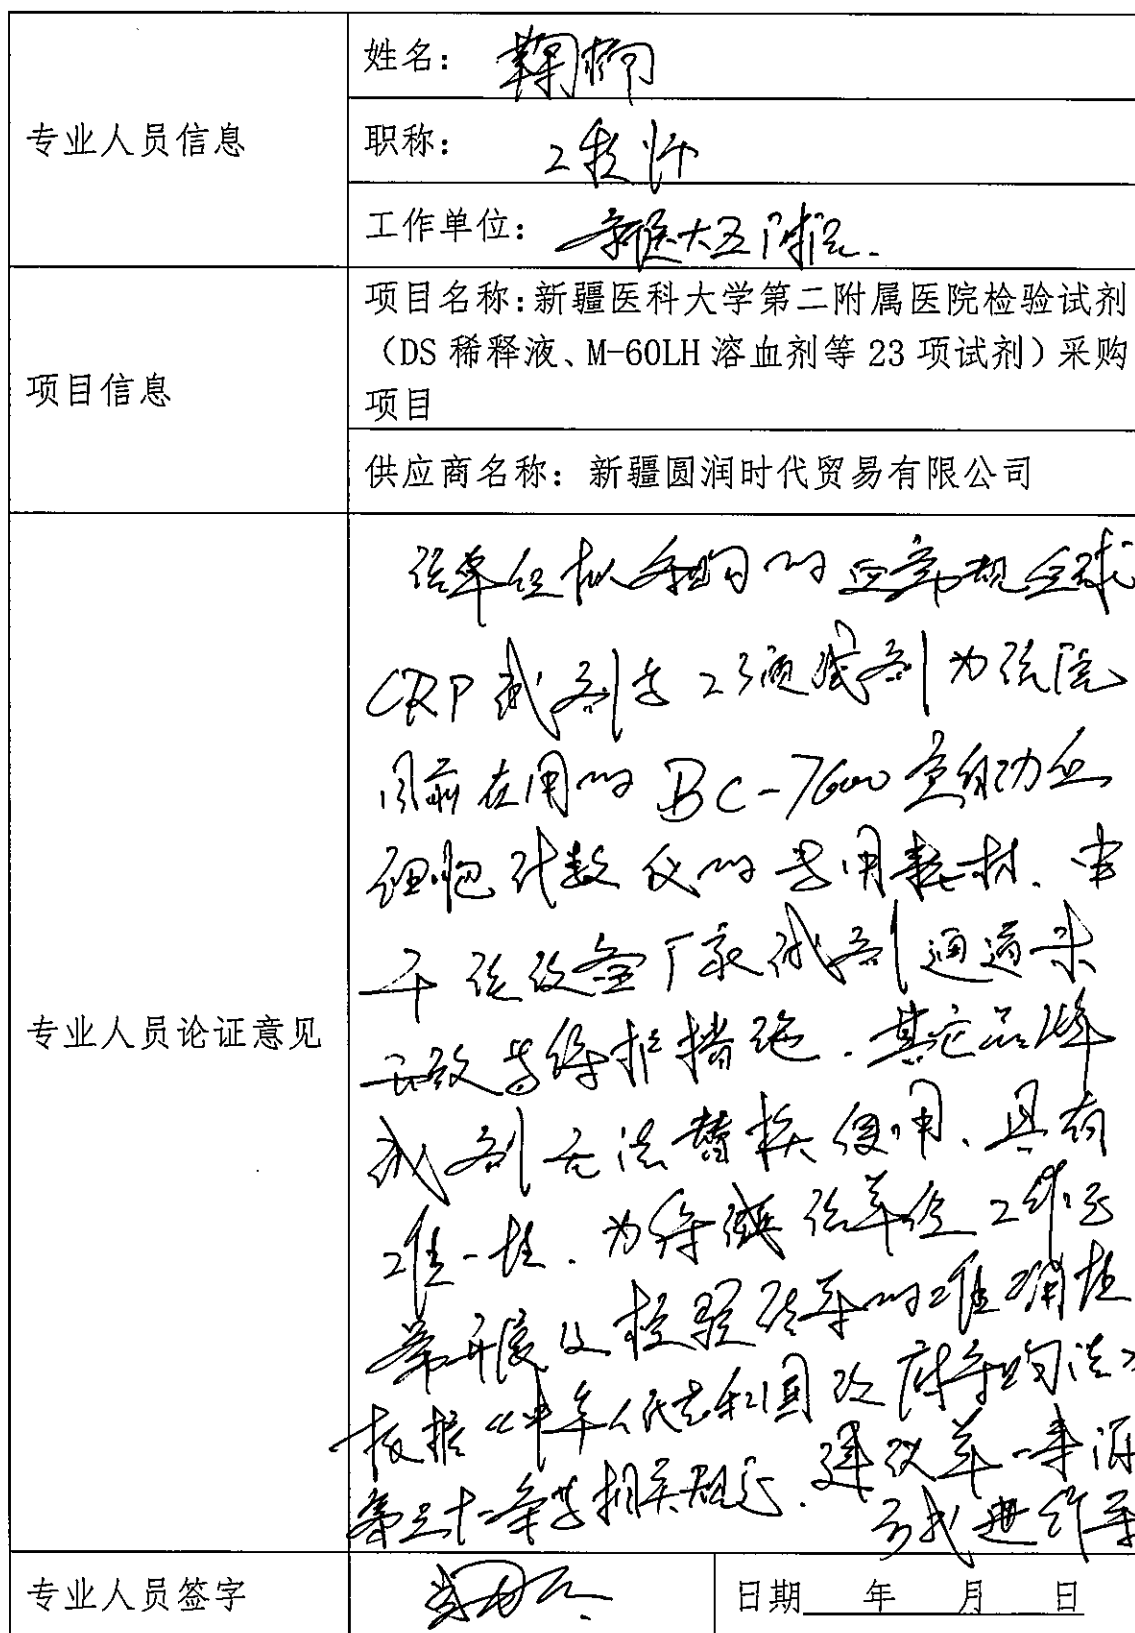 专业人员信息
姓名：
职称：
工作单位：新医大五附院.
项目信息
项目名称:新疆医科大学第二附属医院检验试剂
（DS 稀释液、M-60LH 溶血剂等 23 项试剂）采购
项目
供应商名称：新疆圆润时代贸易有限公司
专业人员论证意见
该单位拟采购的血常规
CRP试剂等23项试剂为该院
目前在用的BC-7600全自动血
细胞计数仪的专用耗材.由
于该设备厂家试剂通道未
开放等保护措施.其它品牌
试剂无法替换使用.具有
唯一性.为保障该单位工作正
常开展及检验结果的准确性
根据《中华人民共和国政府采购法》
第三十一条等相关规定.建议单一来源
方式进行采
专业人员签字
日期 年 月 日